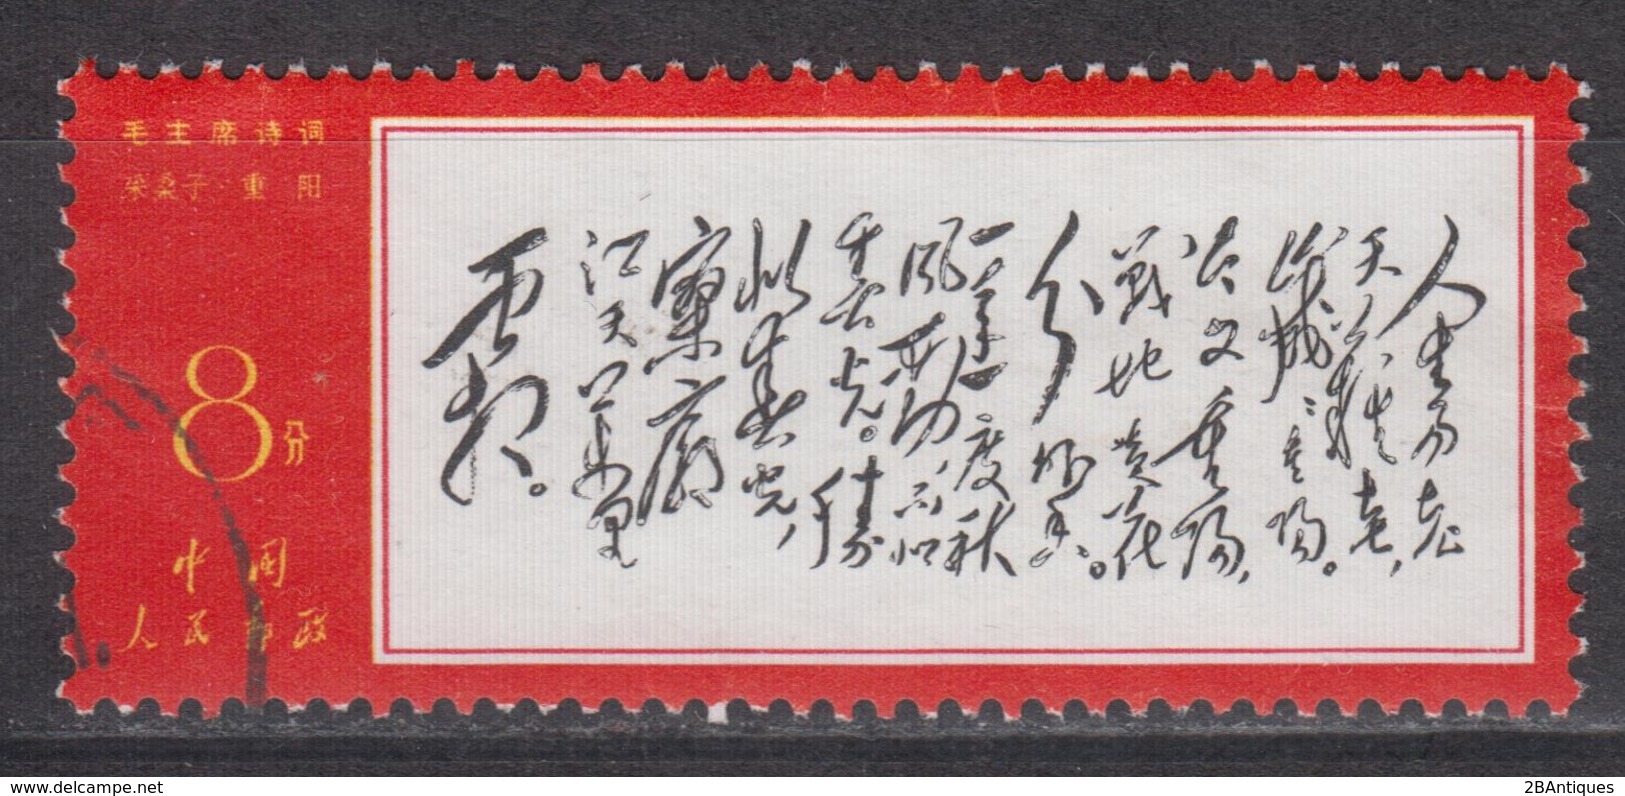 毛主席诗词
采桑子·重阳
8分
中国
人民邮政
人生易老
天难老,
岁岁重阳。
今又重阳,
战地黄花
分外香。
一年一度秋
风劲,不似
春光。胜
似春光,
寥廓
江天万里
霜。
2BAntiques